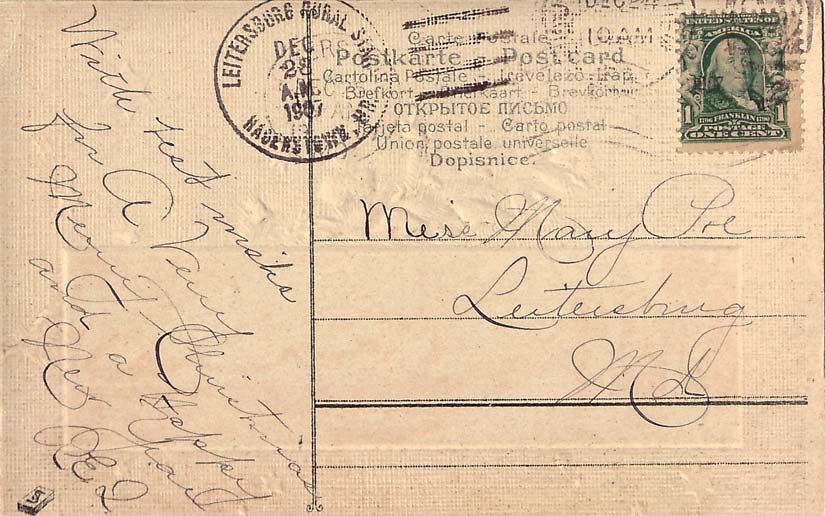 With best wishes
for A Very
Merry Christmas
and a Happy
New Year
LEITERSBURG RURAL STA.
DEC
28
A.M.
190
HAGERSTOWN, MD.
DEC 24
10 AM
Carte Postale
Postkarte - Postcard
Cartolina Postale - Levelező-Lap
Briefkort - Briefkaart - Brevkort
ОТКРЫТОЕ ПИСЬМО
Tarjeta postal - Carto postal
Union postale universelle
Dopisnice.
UNITED STATES OF AMERICA
1 1790 FRANKLIN 1790 1
POSTAGE
ONE CENT
Miss Mary Poe
Leitersburg
MD